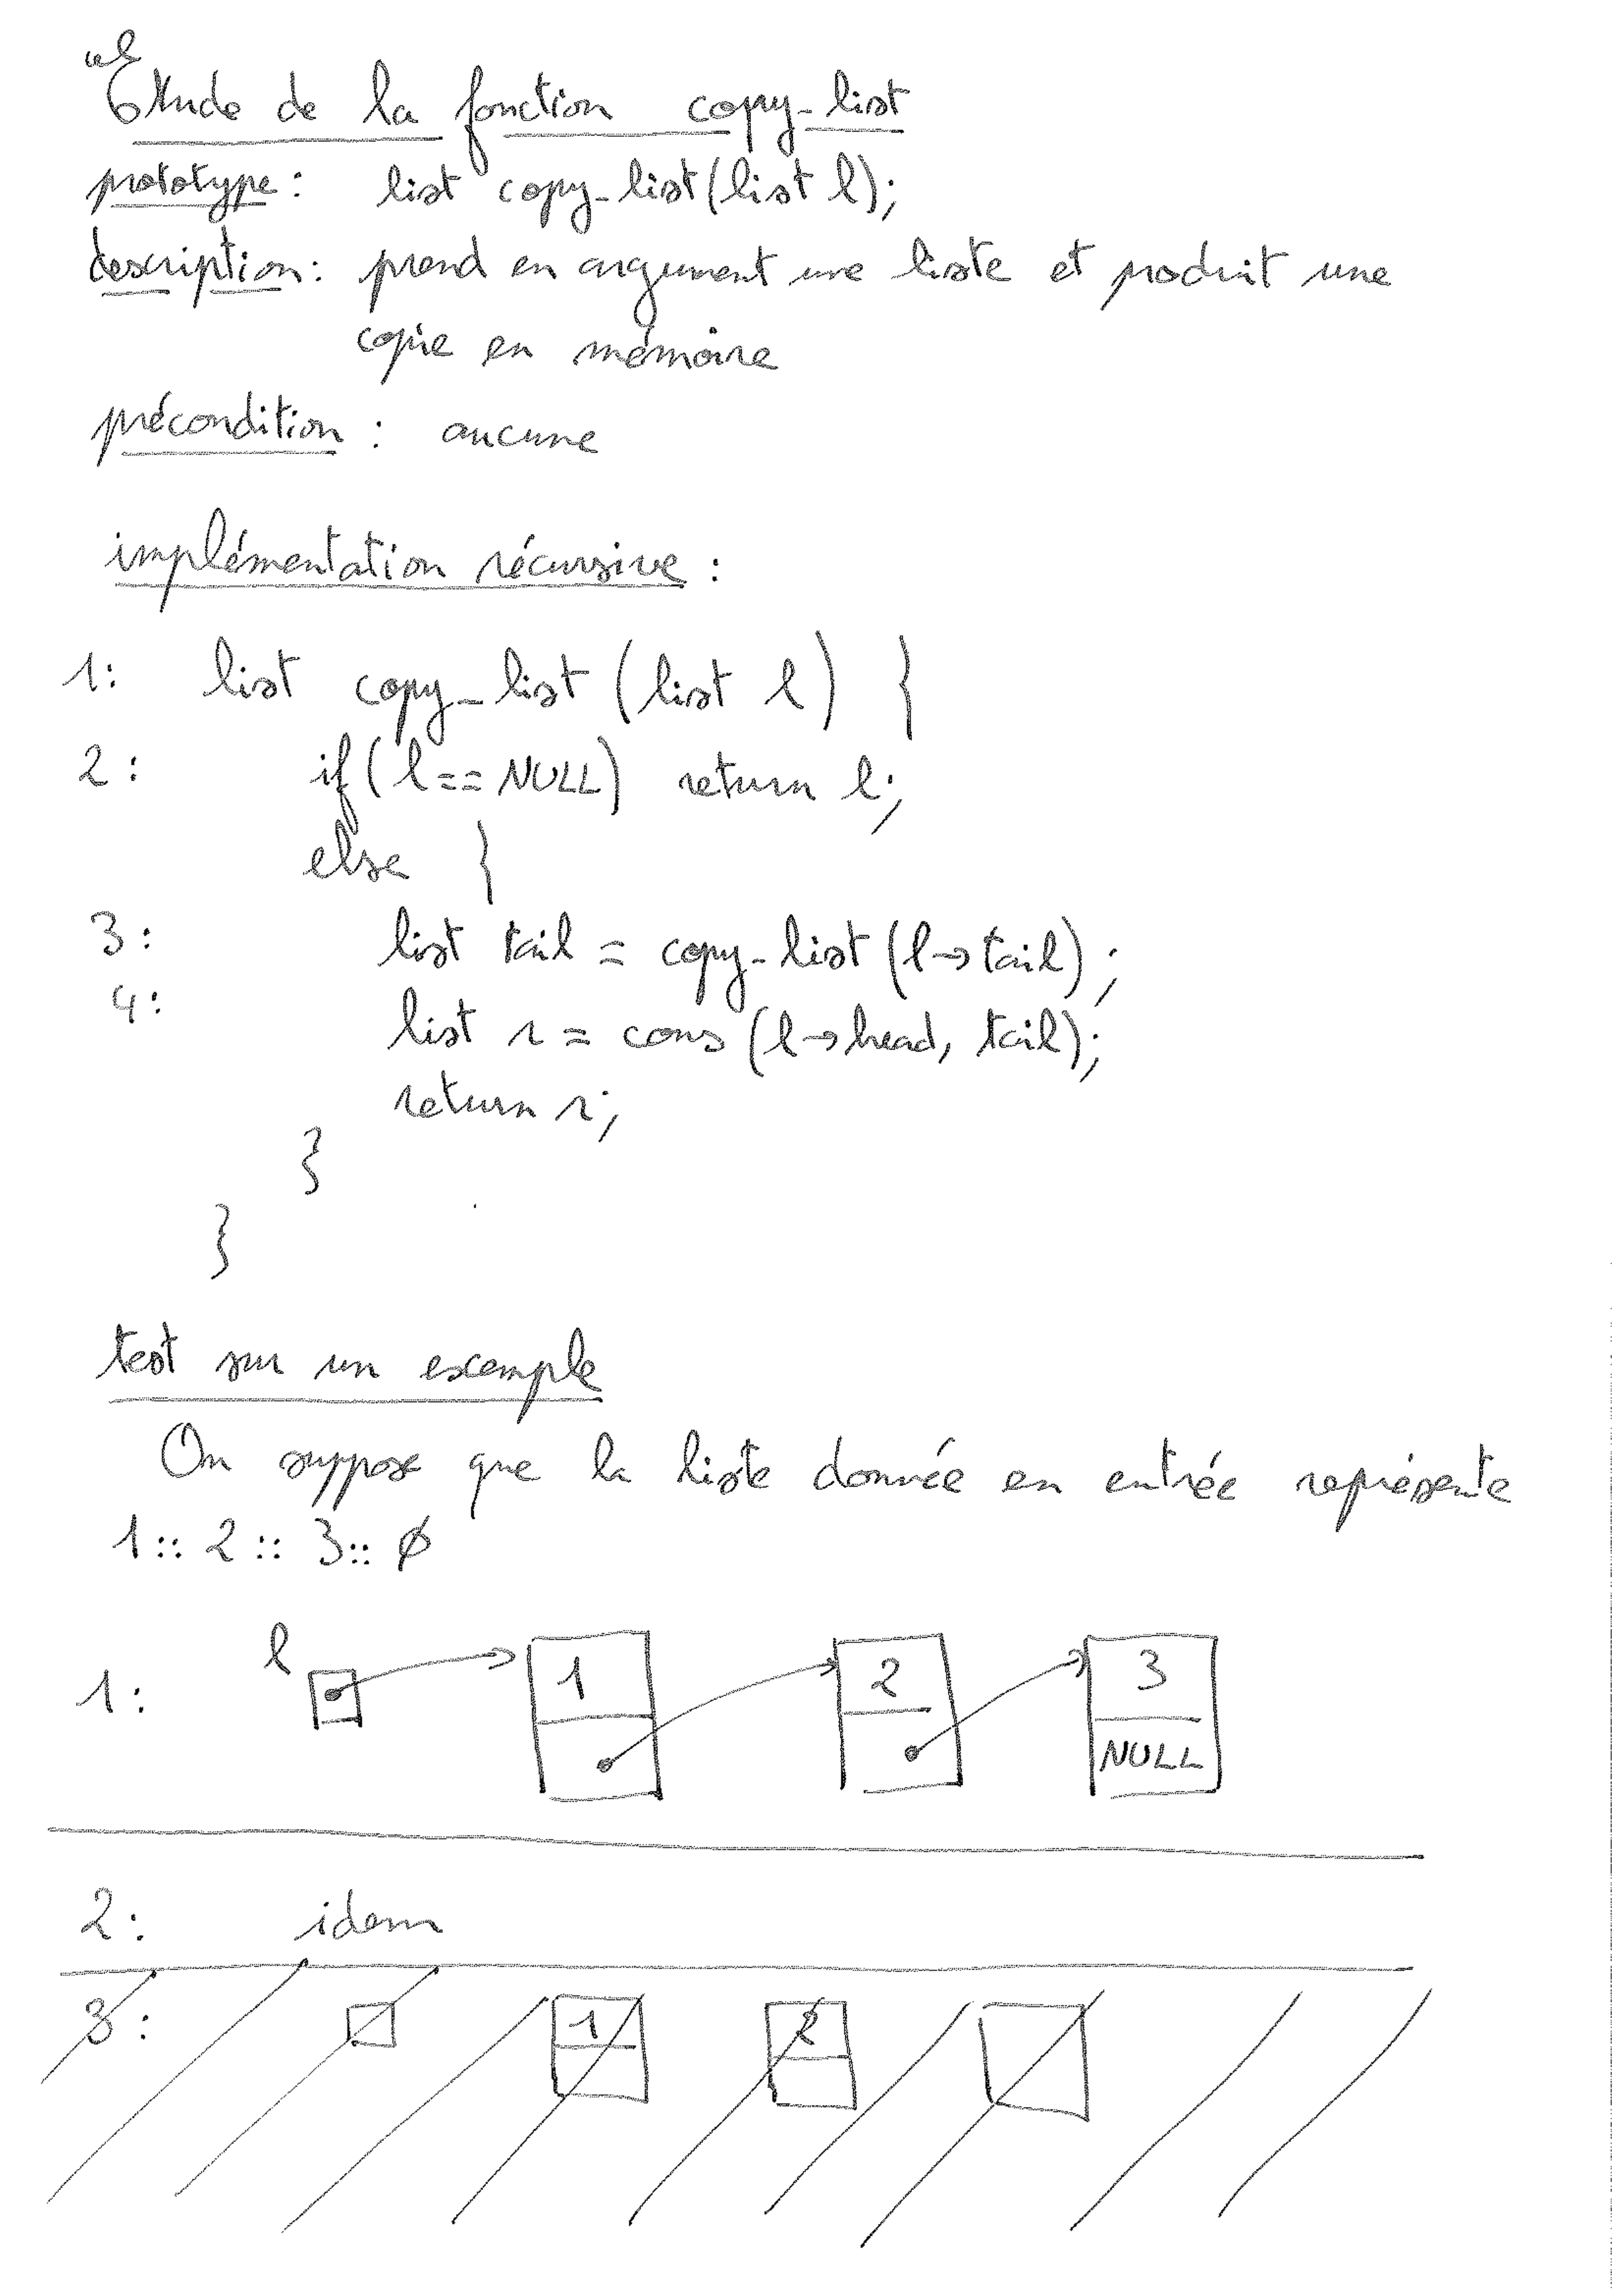 Etude de la fonction copy_list
prototype : list copy_list(list l);
description : prend en argument une liste et produit une
copie en mémoire
précondition : aucune
implémentation récursive :
1: list copy_list (list l) {
2: if (l == NULL) return l;
else {
3: list tail = copy_list (l→tail);
4: list r = cons (l→head, tail);
return r;
}
}
test sur un exemple
On suppose que la liste donnée en entrée représente
1 :: 2 :: 3 :: ∅
l
1: 1 2 3
NULL
2: idem
3: 1 2